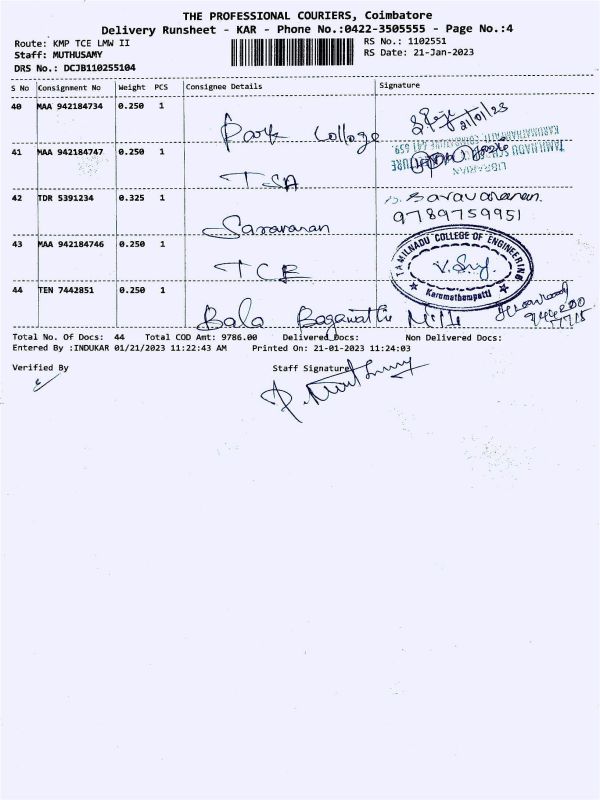 THE PROFESSIONAL COURIERS, Coimbatore
Delivery Runsheet - KAR - Phone No.:0422-3505555 - Page No.:4
Route: KMP TCE LMW II
RS No.: 1102551
Staff: MUTHUSAMY
RS Date: 21-Jan-2023
DRS No.: DCJB110255104
S No Consignment No Weight PCS Consignee Details Signature
40 MAA 942184734 0.250 1
Park College
21/01/23
41 MAA 942184747 0.250 1
TAMILNADU
LIBRARIAN
TSA
42 TDR 5391234 0.325 1
Saravanan
Saravanan.
9789759951
43 MAA 942184746 0.250 1
TCE
TAMILNADU COLLEGE OF ENGINEERING
Karumathampatti
44 TEN 7442851 0.250 1
Bala Bagawathi Mills
Total No. Of Docs: 44 Total COD Amt: 9786.00 Delivered Docs: Non Delivered Docs:
Entered By :INDUKAR 01/21/2023 11:22:43 AM Printed On: 21-01-2023 11:24:03
Verified By
Staff Signature